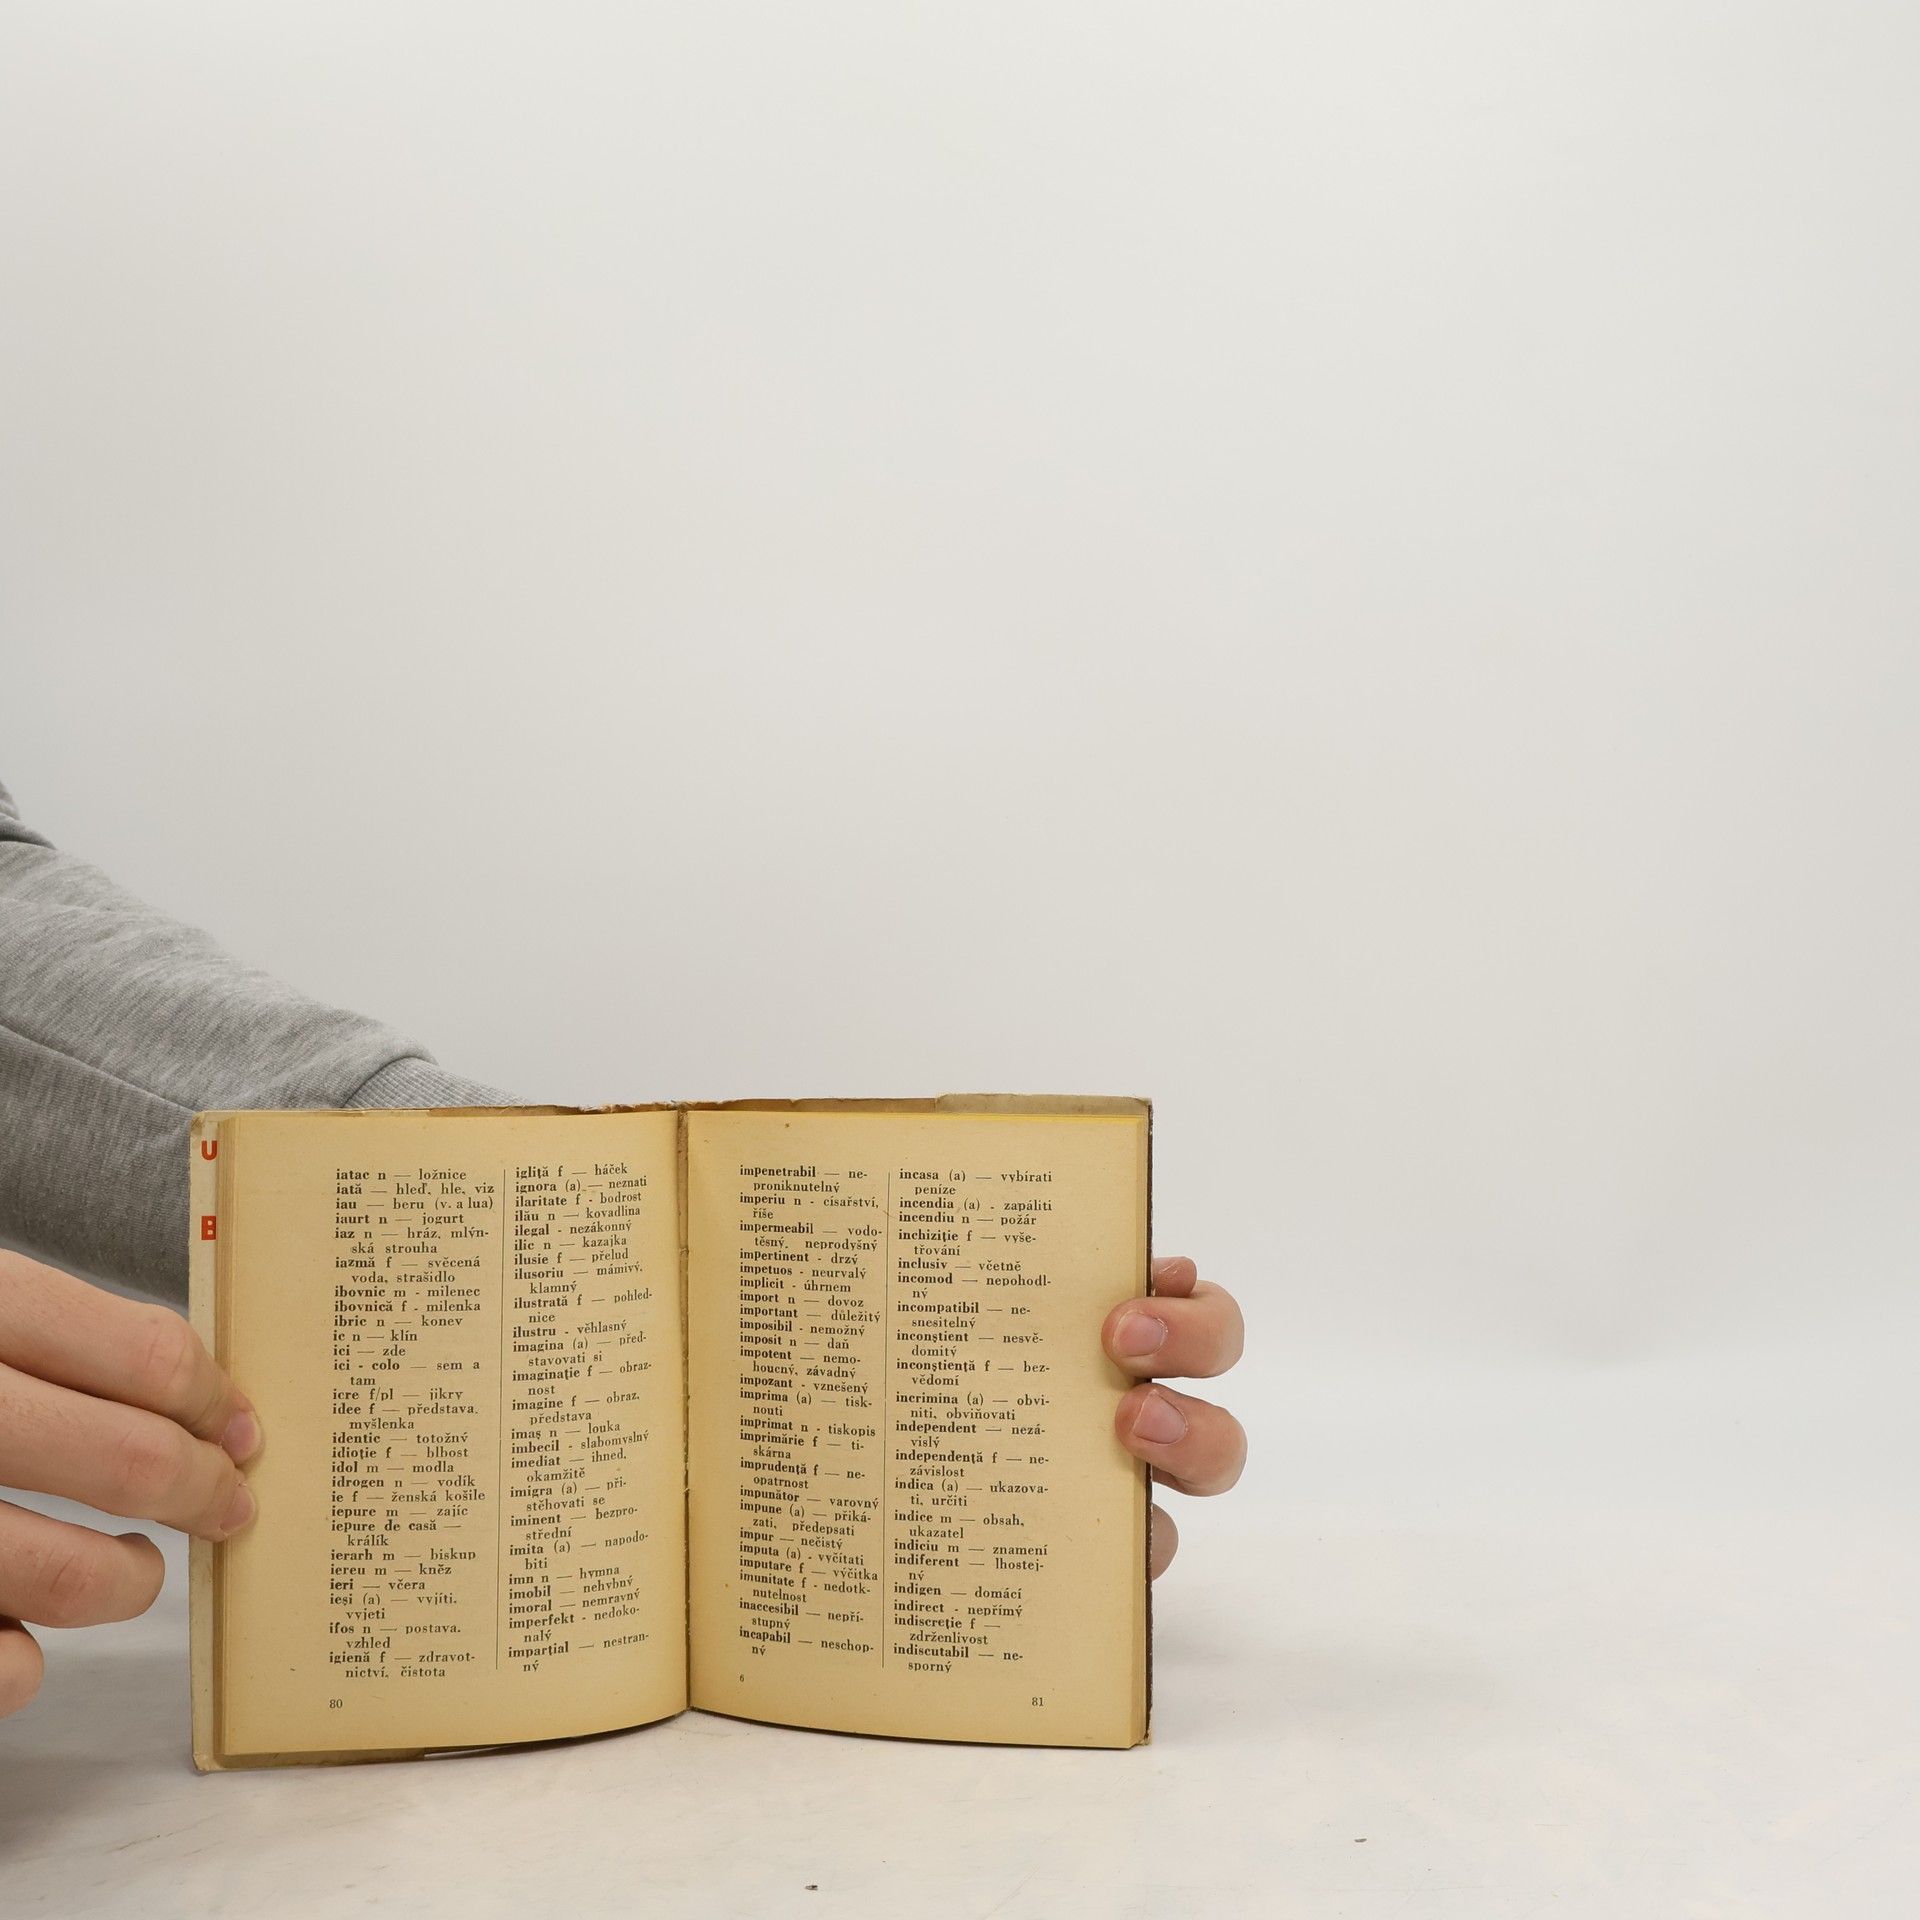 U
B
iatac n — ložnice
iată — hleď, hle, viz
iau — beru (v. a lua)
iaurt n — jogurt
iaz n — hráz, mlýn-
ská strouha
iazmă f — svěcená
voda, strašidlo
ibovnic m - milenec
ibovnică f - milenka
ibric n — konev
ic n — klín
ici — zde
ici - colo — sem a
tam
icre f/pl — jikry
idee f — představa,
myšlenka
identic — totožný
idioţie f — blbost
idol m — modla
idrogen n — vodík
ie f — ženská košile
iepure m — zajíc
iepure de casă —
králík
ierarh m — biskup
iereu m — kněz
ieri — včera
ieşi (a) — vyjíti,
vyjeti
ifos n — postava,
vzhled
igienă f — zdravot-
nictví, čistota
80
igliţă f — háček
ignora (a) — neznati
ilaritate f - bodrost
ilău n — kovadlina
ilegal - nezákonný
ilic n — kazajka
ilusie f — přelud
ilusoriu — mámivý,
klamný
ilustrată f — pohled-
nice
ilustru - věhlasný
imagina (a) — před-
stavovati si
imaginaţie f — obraz-
nost
imagine f — obraz,
představa
imaş n — louka
imbecil - slabomyslný
imediat — ihned,
okamžitě
imigra (a) — při-
stěhovati se
iminent — bezpro-
střední
imita (a) — napodo-
biti
imn n — hymna
imobil — nehybný
imoral — nemravný
imperfekt - nedoko-
nalý
imparţial — nestran-
ný
impenetrabil — ne-
proniknutelný
imperiu n - císařství,
říše
impermeabil — vodo-
těsný, neprodyšný
impertinent - drzý
impetuos - neurvalý
implicit - úhrnem
import n — dovoz
important — důležitý
imposibil - nemožný
imposit n — daň
impotent — nemo-
houcný, závadný
impozant - vznešený
imprima (a) — tisk-
nouti
imprimat n - tiskopis
imprimărie f — ti-
skárna
imprudenţă f — ne-
opatrnost
impunător — varovný
impune (a) — přiká-
zati, předepsati
impur — nečistý
imputa (a) - vyčítati
imputare f — výčitka
imunitate f - nedotk-
nutelnost
inaccesibil — nepří-
stupný
incapabil — neschop-
ný
6
incasa (a) — vybírati
peníze
incendia (a) - zapáliti
incendiu n — požár
inchiziţie f — vyše-
třování
inclusiv — včetně
incomod — nepohodl-
ný
incompatibil — ne-
snesitelný
inconştient — nesvě-
domitý
inconştienţă f — bez-
vědomí
incrimina (a) — obvi-
niti, obviňovati
independent — nezá-
vislý
independenţă f — ne-
závislost
indica (a) — ukazova-
ti, určiti
indice m — obsah,
ukazatel
indiciu m — znamení
indiferent — lhostej-
ný
indigen — domácí
indirect - nepřímý
indiscreţie f —
zdrženlivost
indiscutabil — ne-
sporný
81